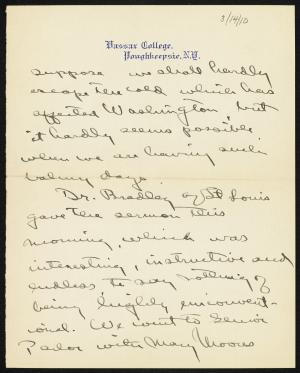 3/14/10
Vassar College,
Poughkeepsie, N.Y.
suppose we shall hardly
escape the cold which has
affected Washington, but
it hardly seems possible
when we are having such
balmy days.
Dr. Bradley of St Louis
gave the sermon this
morning, which was
interesting, instructive and
endless, to say nothing of
being highly unconvent-
ional. We went to Senior
Parlor with Mary Moores